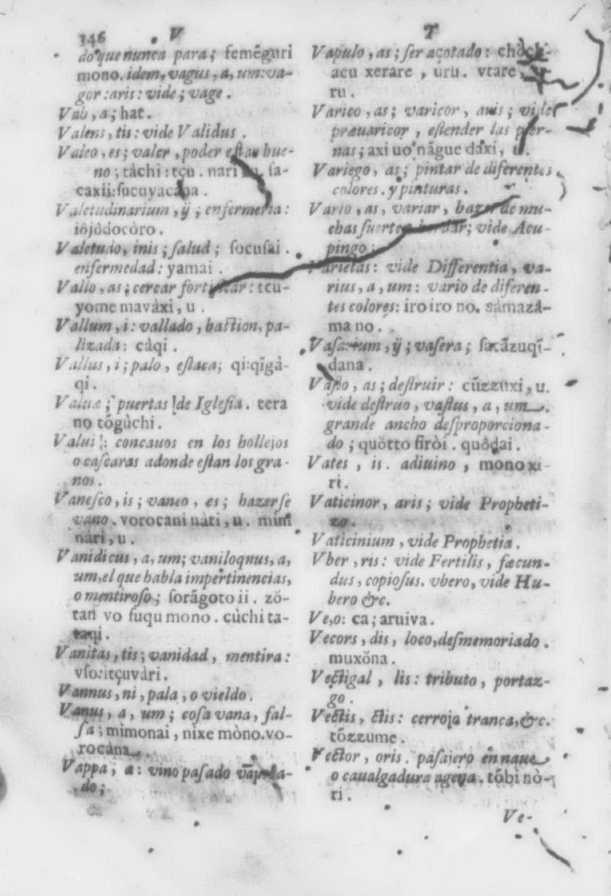 146 V
do que nunca para; femēguri
mono. idem, vagus, a, um: va-
gor: aris: vide; vage.
Vah, a; hat.
Valens, tis: vide Validus.
Valeo, es; valer, poder estar bue-
no; táchi: tçu. nari, u, sa-
caxii: sucuyacana.
Valetudinarium, ÿ; enfermeria:
iójódocóro.
Valetudo, inis; salud; socusai.
enfermedad: yamai.
Vallo, as; cercar fortificar: tçu-
yome maváxi, u.
Vallum, i: vallado, bastion, pa-
lizada: cáqi.
Vallus, i; palo, estaca; qi: qīgá-
qi.
Valuæ; puertas de Iglesia. tera
no tõgùchi.
Valui: concauos en los hollejos
o cascaras adonde estan los gra-
nos.
Vanesco, is; vaneo, es; hazerse
vano. vorocani nári, u. mimi
nari, u.
Vanidicus, a, um; vaniloqnus, a,
um, el que habla impertinencias,
o mentiroso; sorāgoto ii. zŏ-
tan vo fuqu mono. cùchi ta-
taqi.
Vanitas, tis; vanidad, mentira:
vso: itçuvári.
Vannus, ni, pala, o vieldo.
Vanus, a, um; cosa vana, fal-
sa; mimonai, nixe mòno. vo-
rocána
Vappa, a: vino pasado
do;
T
Vapulo, as; ser açotado: chŏchi-
acu xerare, uru. vtare,
ru.
Varico, as; varicor, aris; vide
præuaricor, estender las pier-
nas; axi uo nāgue daxi, u.
Variego, as; pintar de diferentes
colores. y pinturas.
Vario, as, variar, hazer de mu-
chas suertes, bordar; vide Acu-
pingo;
Varietas: vide Differentia, va-
rius, a, um: vario de diferen-
tes colores: iro iro no. sámazá-
ma no.
Vasarium, ÿ; vasera; saxāzuqī-
dana.
Vasto, as; destruir: cūzzuxi, u.
vide destruo, vastus, a, um.
grande ancho desproporciona-
do; quŏtto firòi. quŏdai.
Vates, is. adiuino, mono xi-
ri.
Vaticinor, aris; vide Propheti-
zo.
Vaticinium, vide Prophetia.
Vber, ris: vide Fertilis, fæcun-
dus, copiosus. vbero, vide Hu-
bero &c.
Ve, o: ca; aruiva.
Vecors, dis, loco, desmemoriado.
muxŏna.
Vectigal, lis: tributo, portaz-
go.
Vectis, ctis: cerroja tranca, &c.
tŏzzume.
Vector, oris. pasajero en naue
o caualgadura agena. tŏbi nò-
ri.
Ve-